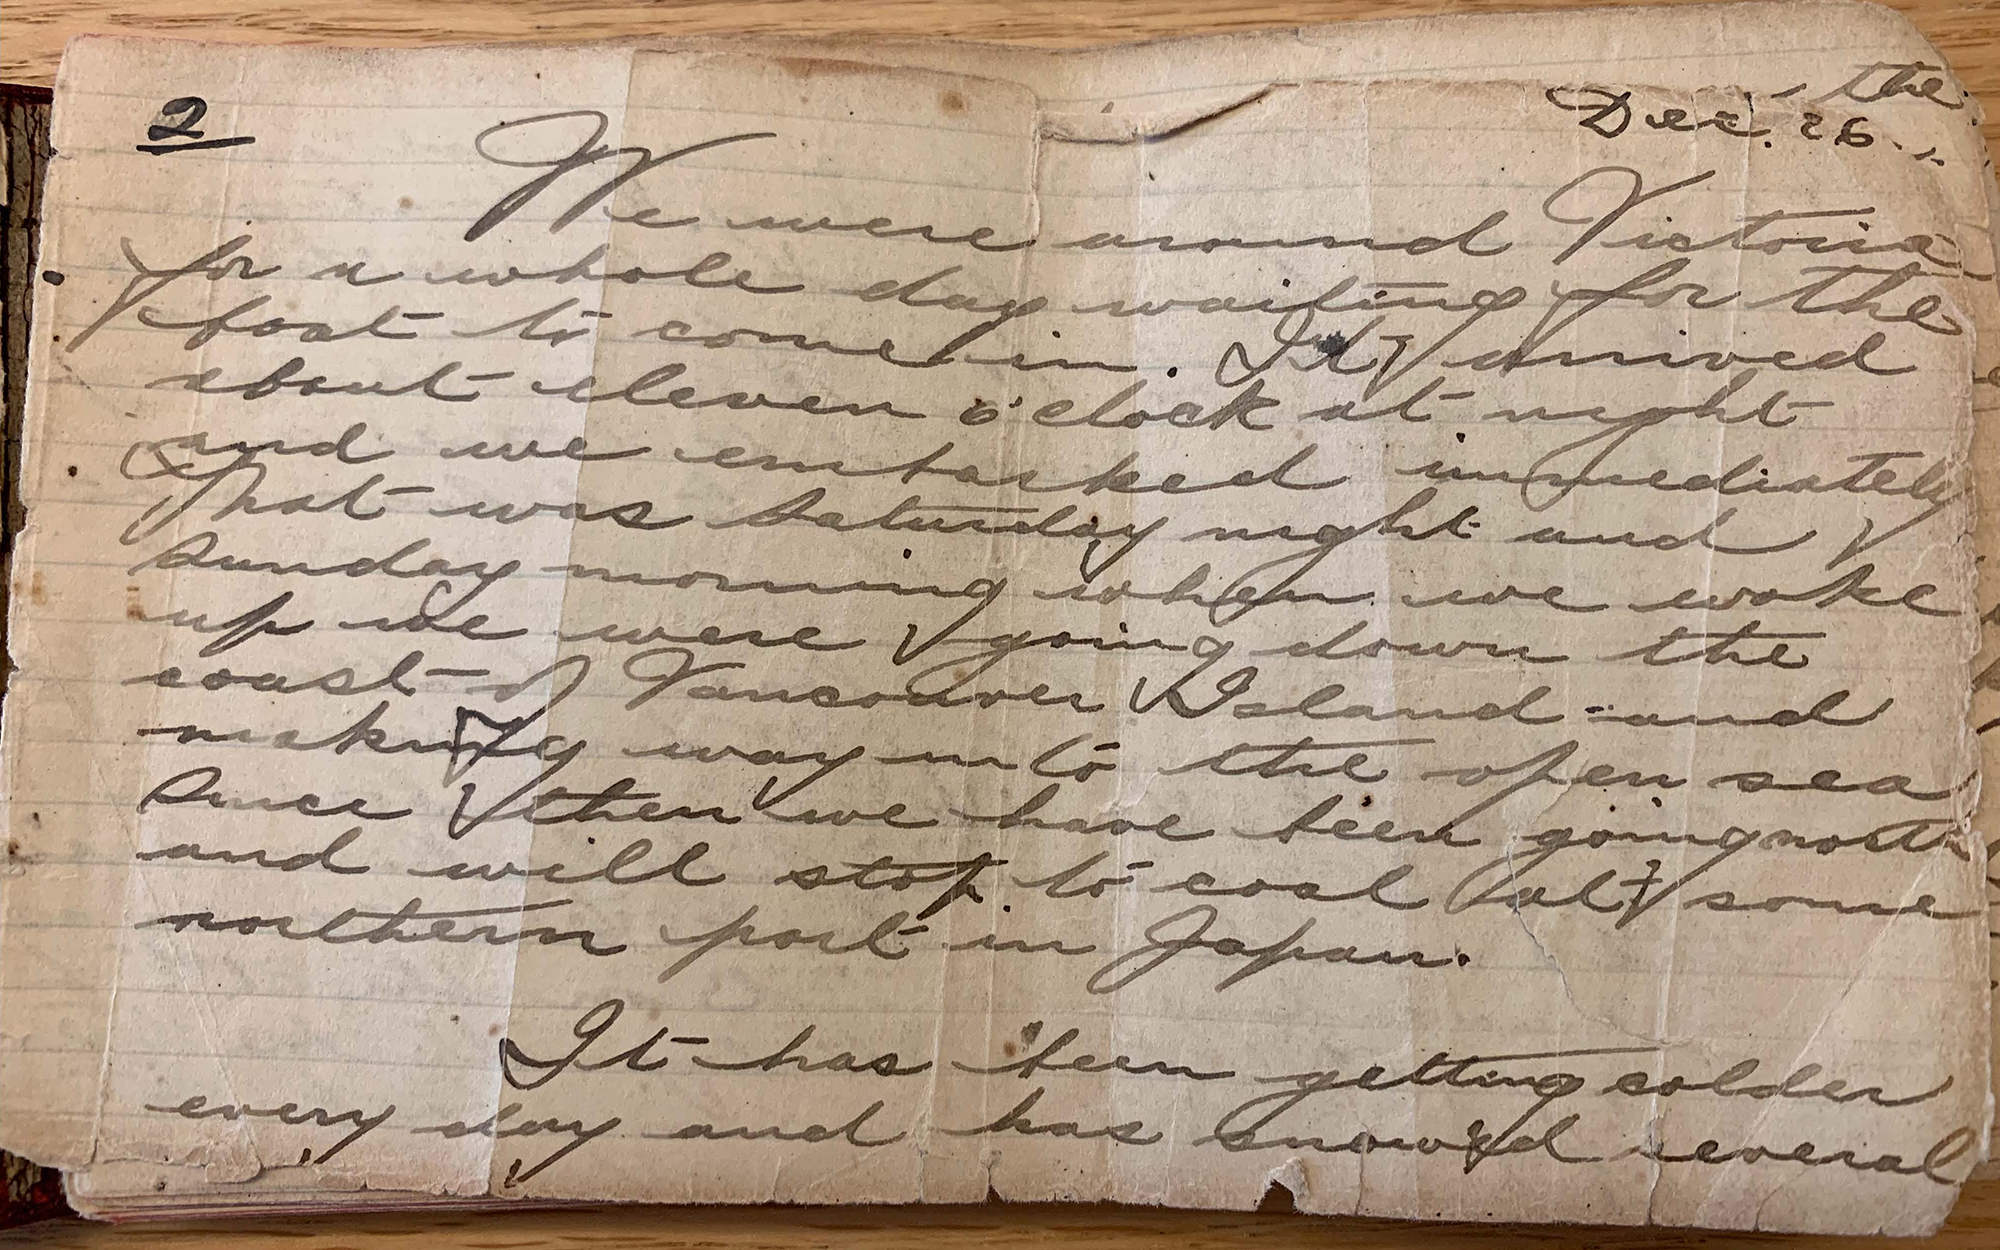 the
2
Dec. 26
We were around Victoria
for a whole day waiting for the
boat to come in. It arrived
about eleven o'clock at night
and we embarked immediately
That was Saturday night and
Sunday morning when we woke
up we were going down the
coast of Vancouver Island - and
making way into the open sea
Since then we have been going north
and will stop to coal at some
northern port in Japan.
It has been getting colder
every day and has snowed several